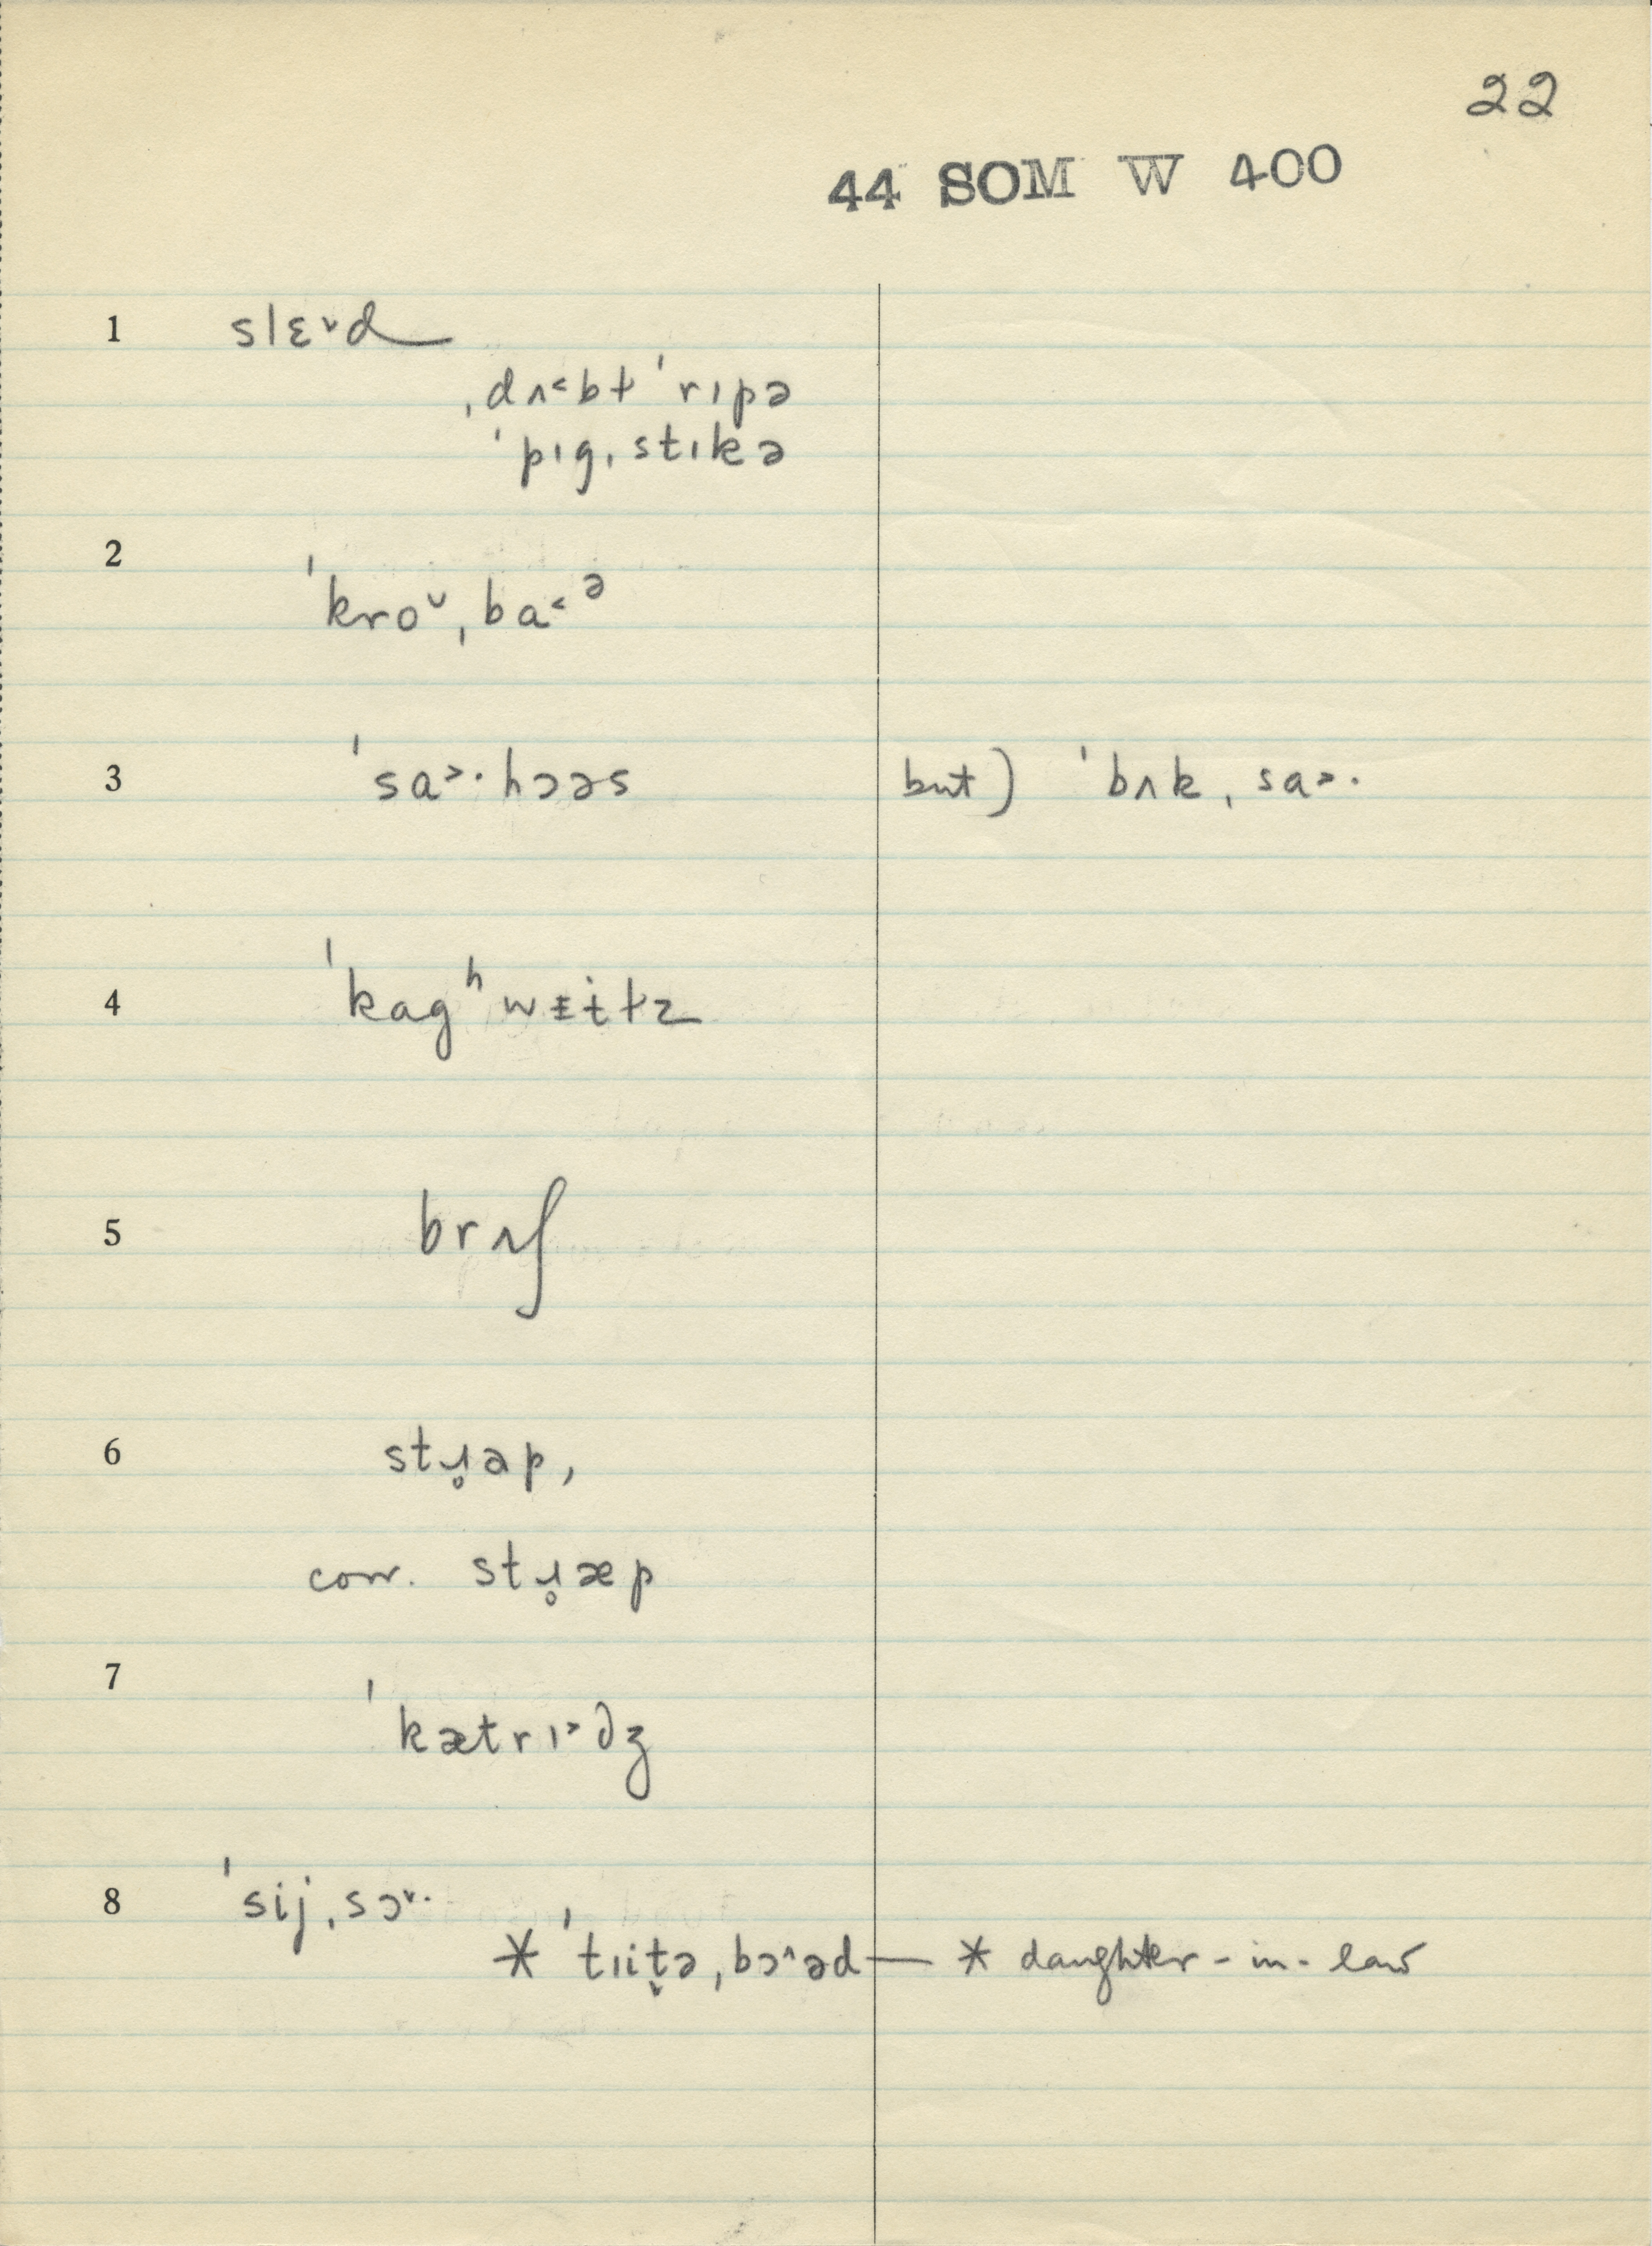 22
44 SOM W 400
1 slɛ˅d
ˌdʌ˂bɫ ˈrɪpə
ˈpɪgˌstɪkə
2
ˈkro˅ˌba˂ᵊ
3 ˈsa˃·hɔəs but) ˈbʌkˌsa˃·
4 ˈkagʰwᵻɨtz
5 brʌʃ
6 stɹ̥ap,
corr. stɹ̥æp
7
ˈkætrɪ˃dʒ
8 ˈsijˌsɔ˅·
* ˈtɪit̬əˌbɔ˄əd — * daughter-in-law